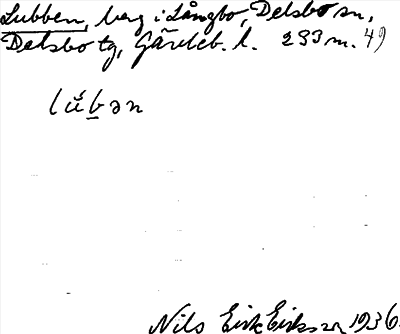 Lubben, berg i Långbo, Delsbo sn,
Delsbo tg, Gävleb. l. 293 m. 49
lúbən
Nils Erik Eriksson 1936.